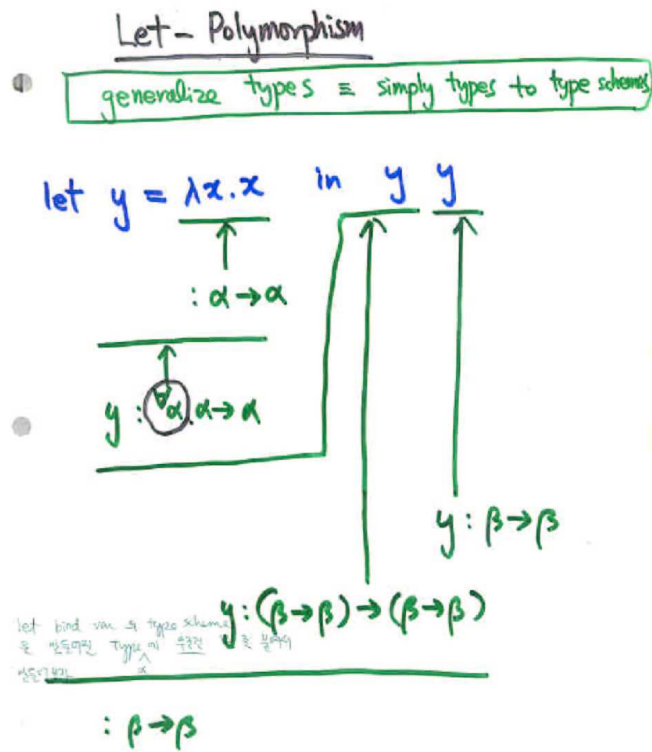 Let - Polymorphism
generalize types ≡ simply types to type schemes
let y = λx.x in y y
: α → α
y : ∀α.α → α
y : β → β
y : (β → β) → (β → β)
let bind var 의 type scheme
을 type 에
α
: β → β